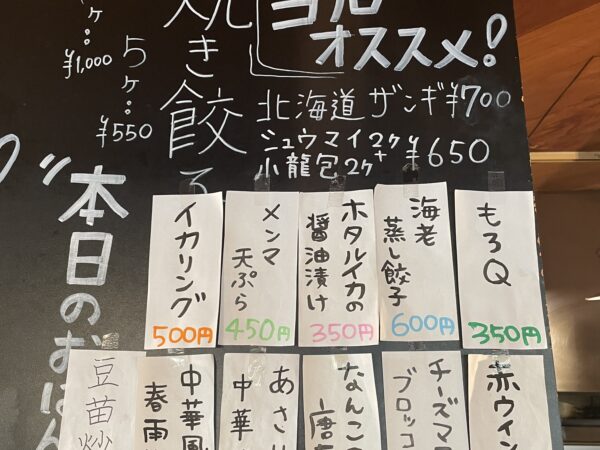 オススメ!
北海道 ザンギ ¥700
シュウマイ2ケ+
小龍包2ケ
¥650
焼き餃子
5ケ:
¥550
ケ:
¥1,000
本日のおばん
もろQ
350円
海老
蒸し餃子
600円
ホタルイカの
醤油漬け
350円
メンマ
天ぷら
450円
イカリング
500円
赤ウイン
チーズマ
ブロッコ
なんこつ
唐
あさり
中華
中華風
春雨
豆苗炒